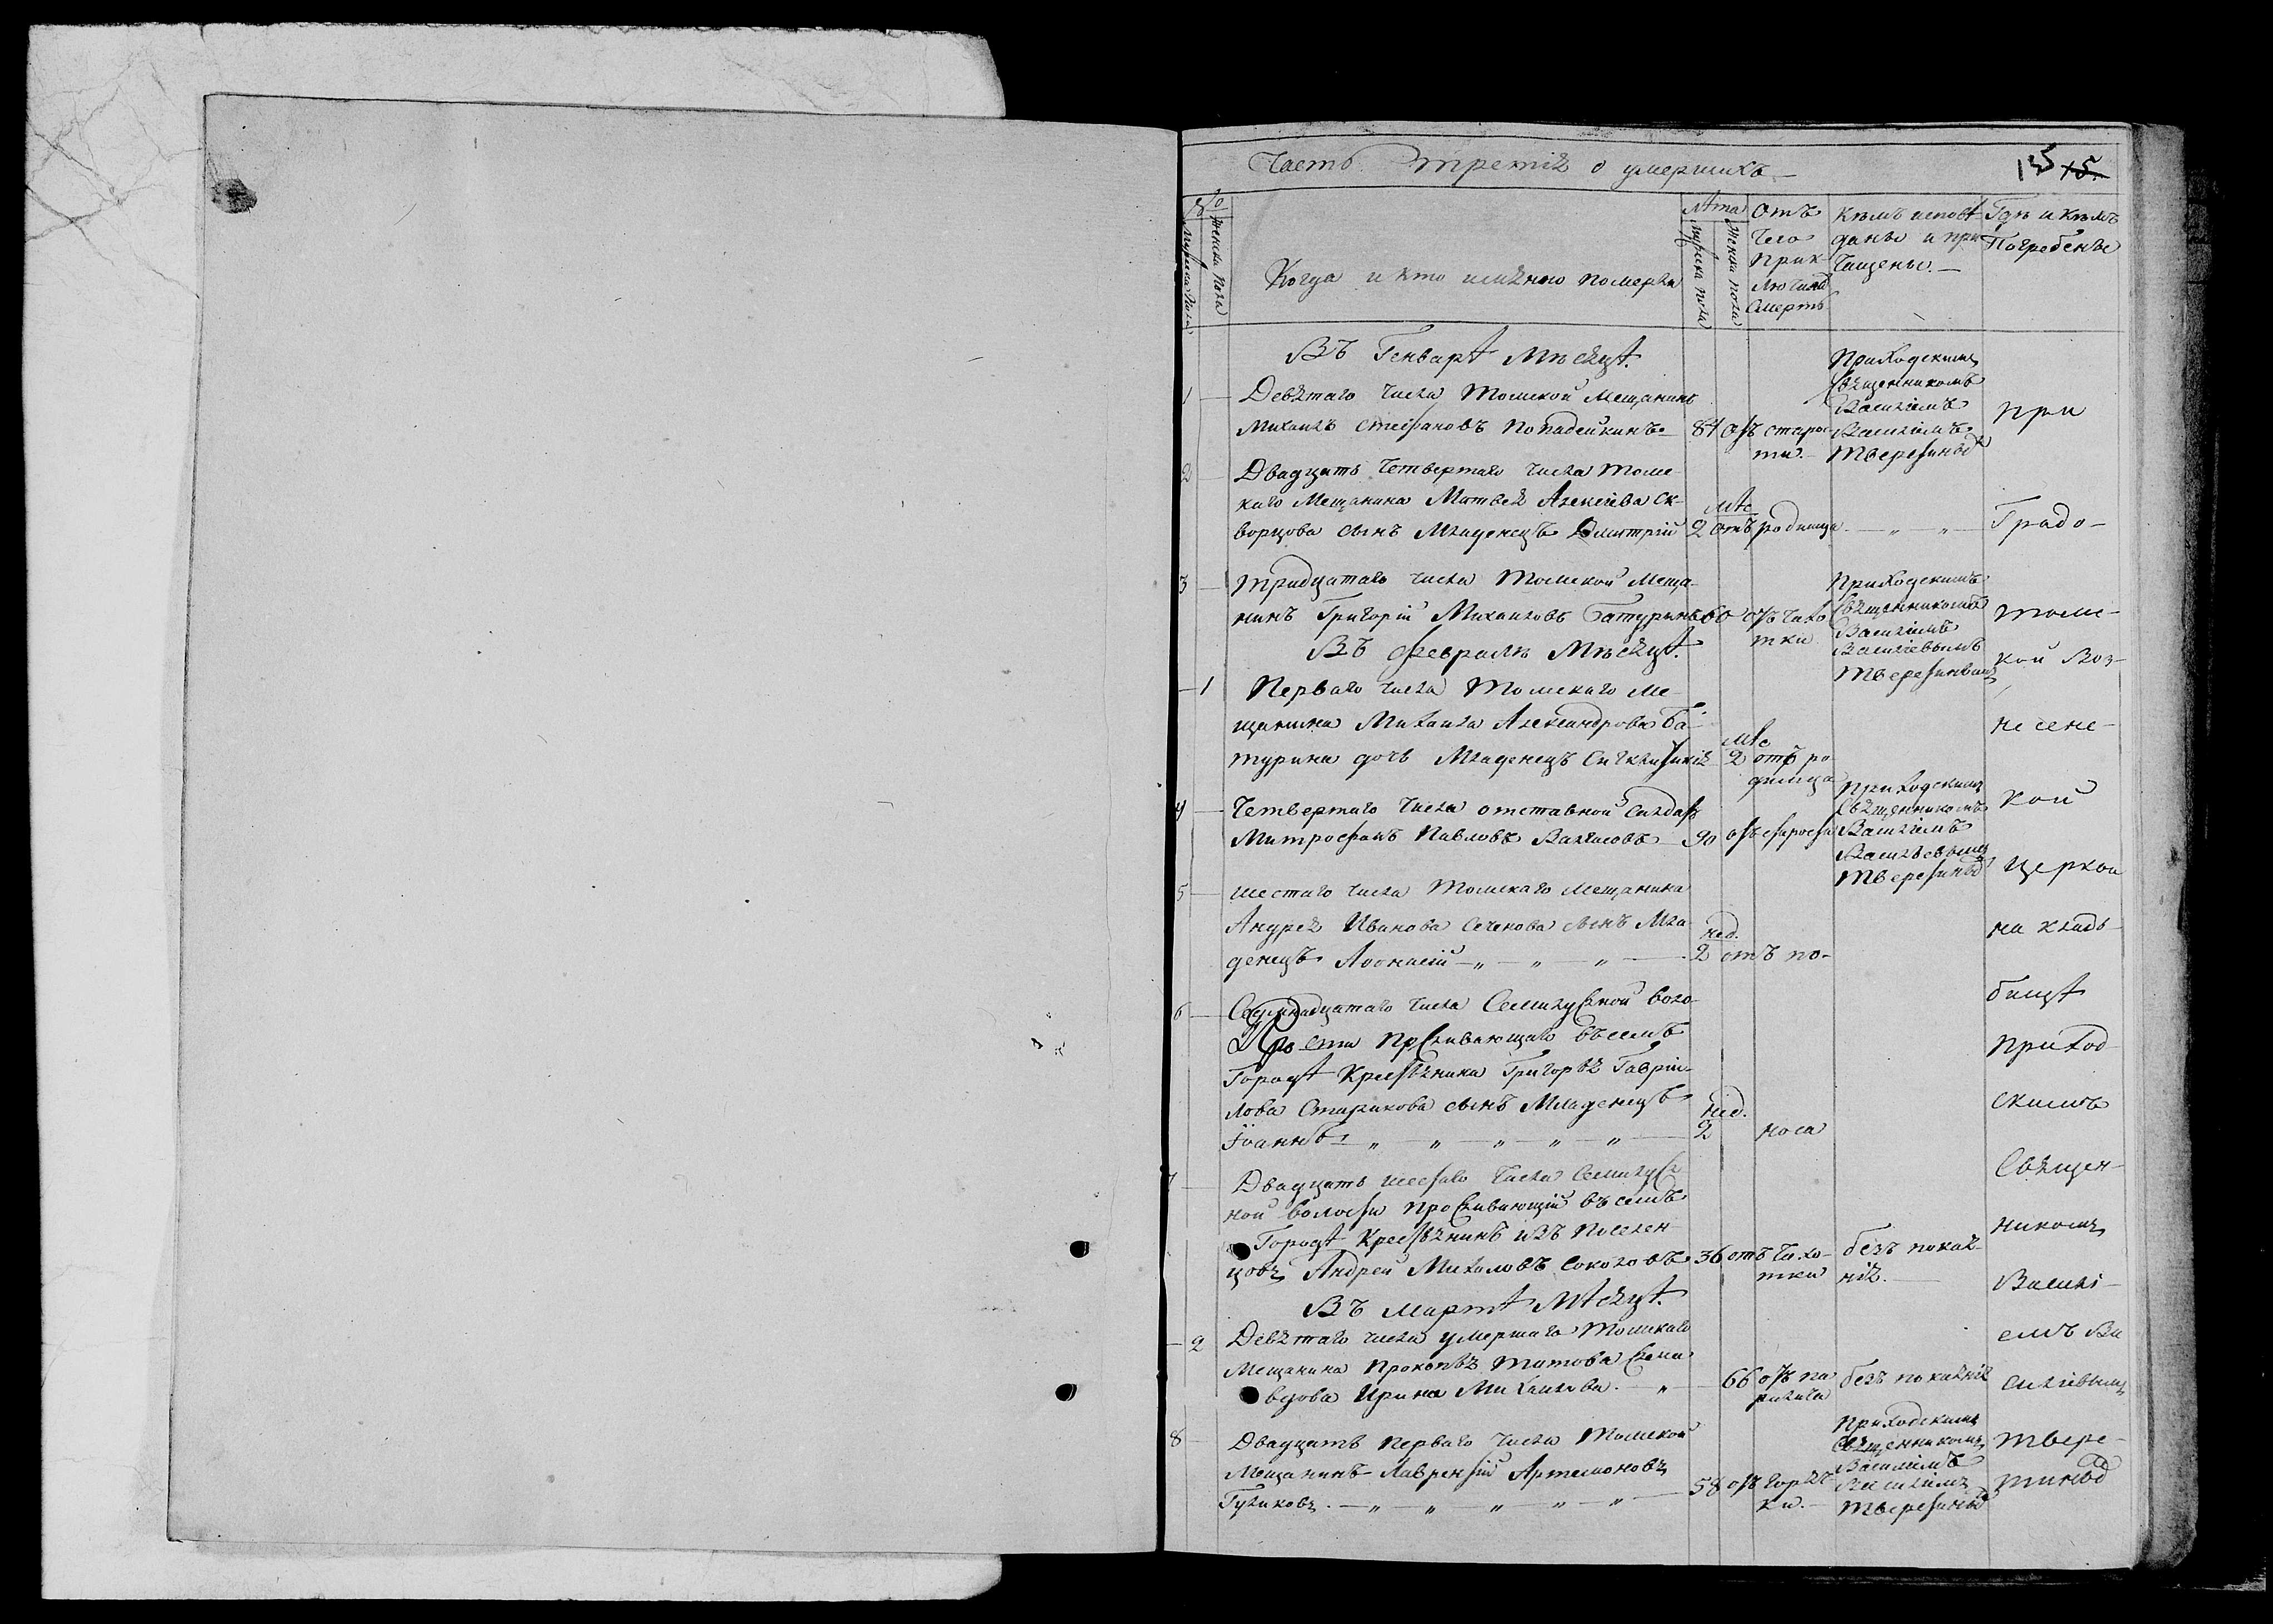 Часть третія о умершихъ
135 15.
№
Мужеска пола
Женска пола
Когда и кто имянно померли
Лѣта
мужеска пола
Женска пола
Отъ
Чего
Прик-
лючилась
Смерть
Кѣмъ исповѣ-
даны и при-
чащены.
Гдѣ и кѣмъ
Погребены
Въ Генварѣ Мѣсяцѣ.
1 Девятаго числа Томской Мещанинъ
Михаилъ Стефановъ Попадейкинъ 84 отъ старос-
ти.
Приходскимъ
Священникомъ
Василіемъ
Василіевымъ
Тверетинымъ
2 Двадцать четвертаго числа Томс-
каго Мещанина Матвея Алексіева Ск-
ворцова сынъ Младенецъ Дмитрій мѣс 2 отъ родимца
3 Тридцатаго числа Томской Меща-
нинъ Григорій Михаиловъ Батуринъ 60 отъ чахо-
тки
Приходскимъ
Священникомъ
Василіемъ
Василіевымъ
Тверетинымъ
Въ Февралѣ Мѣсяцѣ.
1 Перваго числа Томскаго Ме-
щанина Михаила Александрова Ба-
турина дочь Младенецъ Сигклитикія мѣс 2 отъ ро-
димца
4 Четвертаго числа отставной Салдатъ
Митрофанъ Павловъ 90 отъ старости
Приходскимъ
Священникомъ
Василіемъ
Василіевымъ
Тверетинымъ
5 шестаго числа Томскаго Мещанина
Андрея Иванова Сеченова сынъ Мла-
денецъ Афонасій нед. 2 отъ по-
6 Седмнадцатаго числа Семилужной воло-
сти Проживающаго въ семъ
Городѣ Крестьянина Григорья Гаврии-
лова Старикова сынъ Младенецъ
Іоаннъ нед. 2 носа
7 Двадцать шестаго числа Семилуж-
ной волости проживающій въ семъ
Городѣ Крестьянинъ изъ Поселен-
цовъ Андрей Михаловъ Соколовъ 36 отъ чахо-
тки
безъ покая-
нія.
Въ Мартѣ Мѣсяцѣ.
2 Девятаго числа умершаго Томскаго
Мещанина Прокопья Титова
вдова Ирина Михаилова. 66 отъ па-
ралича
безъ покаянія
8 Двадцать перваго числа Томской
Мещанинъ Лаврентій Артемоновъ
Гуликовъ. 58 отъ горяч-
ки.
Приходскимъ
Священникомъ
Василіемъ
Василіевымъ
Тверетинымъ
при
Градо-
томс-
кой Воз-
несенс-
кой
церкви
на клад-
бищѣ
приход-
скимъ
Священ-
никомъ
Василі-
емъ Ва-
силіевымъ
Твере-
тинымъ